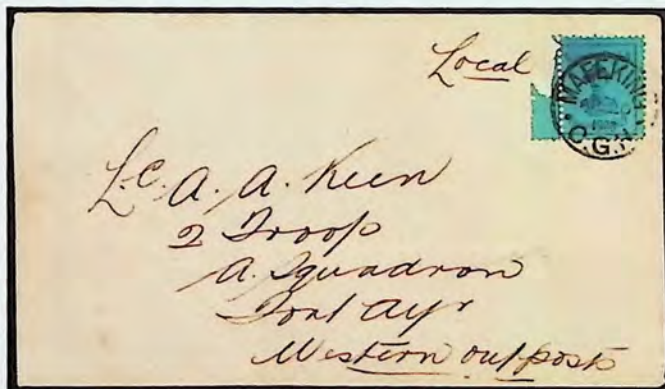 Local
MAFEKING
C.G.H.
L-C. A. A. Keen
2 Troop
A. Squadron
Fort Ayr
Western outposts